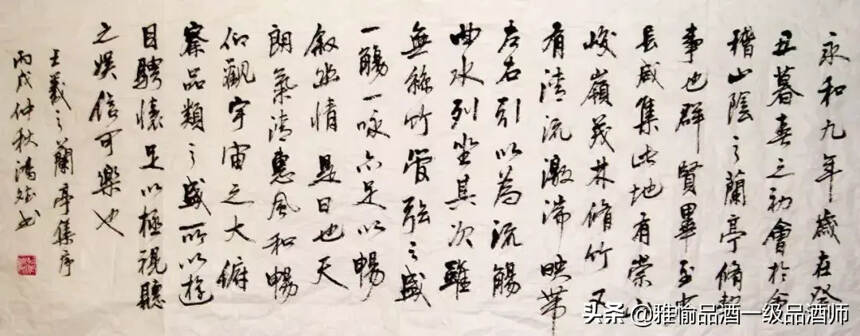 永和九年歲在癸
丑暮春之初會於會
稽山陰之蘭亭脩禊
事也群賢畢至少
長咸集此地有崇山
峻嶺茂林脩竹又
有清流激湍映帶
左右引以為流觴
曲水列坐其次雖
無絲竹管弦之盛
一觴一詠亦足以暢
敘幽情是日也天
朗氣清惠風和暢
仰觀宇宙之大俯
察品類之盛所以遊
目騁懷足以極視聽
之娛信可樂也
王羲之蘭亭集序
丙戌仲秋書
头条 @雅愉品酒一级品酒师